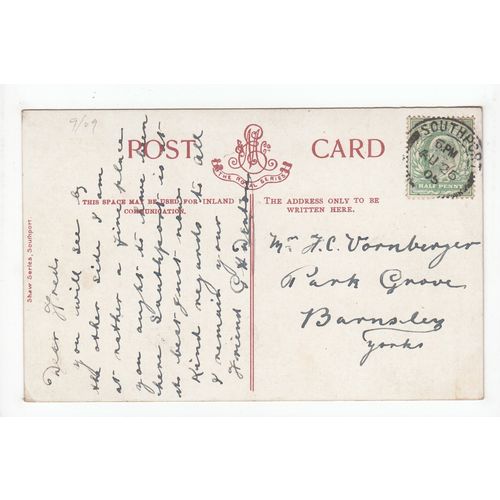 9/09
POST CARD
THE ROYAL SERIES
THIS SPACE MAY BE USED FOR INLAND
COMMUNICATION.
THE ADDRESS ONLY TO BE
WRITTEN HERE.
Shaw Series, Southport
SOUTHPORT
6 PM
AU 25
HALF PENNY
Dear Freds
you will see by
the other side I am
at rather a fine place
you ought to come
here Southport is
its best just now
Kind regards to all
& remain your
friend G H
Mr F. C. Vornberger
Park Grove
Barnsley
Yorks